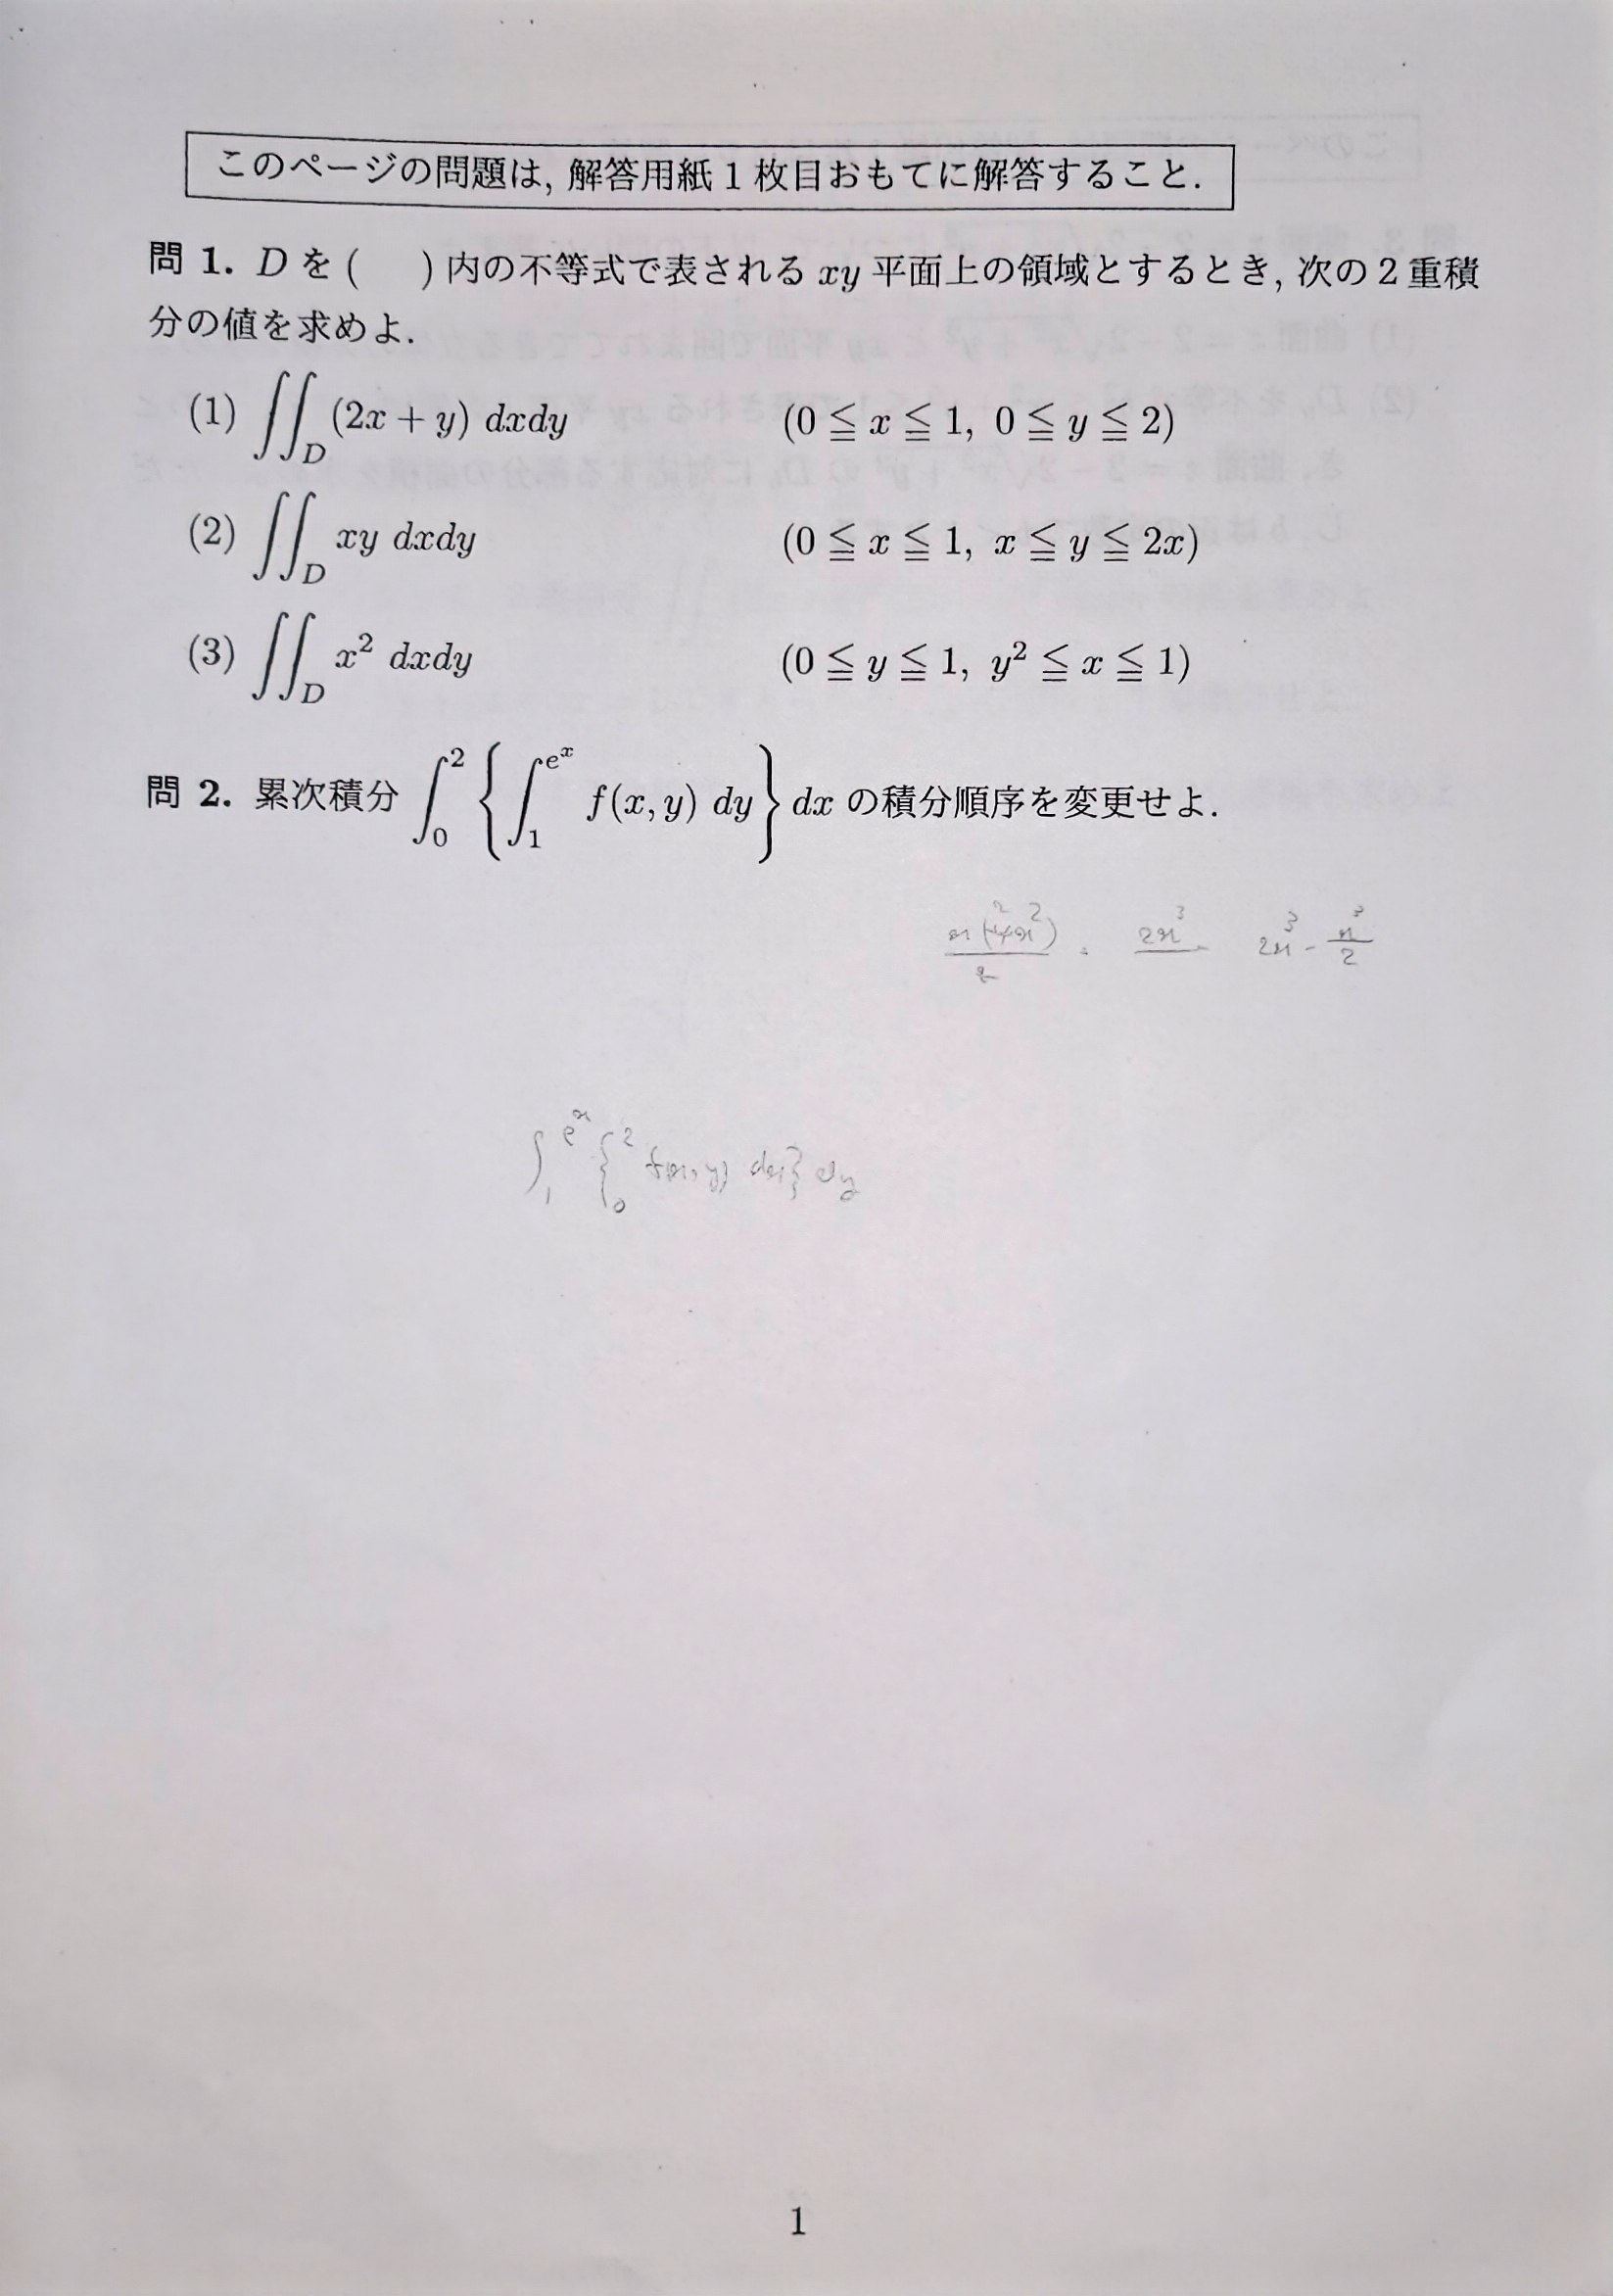 このページの問題は, 解答用紙 1 枚目おもてに解答すること.
問 1. D を ( ) 内の不等式で表される xy 平面上の領域とするとき, 次の 2 重積
分の値を求めよ.
(1) ∬_D (2x + y) dxdy (0 ≦ x ≦ 1, 0 ≦ y ≦ 2)
(2) ∬_D xy dxdy (0 ≦ x ≦ 1, x ≦ y ≦ 2x)
(3) ∬_D x² dxdy (0 ≦ y ≦ 1, y² ≦ x ≦ 1)
問 2. 累次積分 ∫_0^2 { ∫_1^{e^x} f(x, y) dy } dx の積分順序を変更せよ.
2x³ 2x³ - x³/2
∫_1^{e^x} { ∫_0^2 f(x, y) dx } dy
1